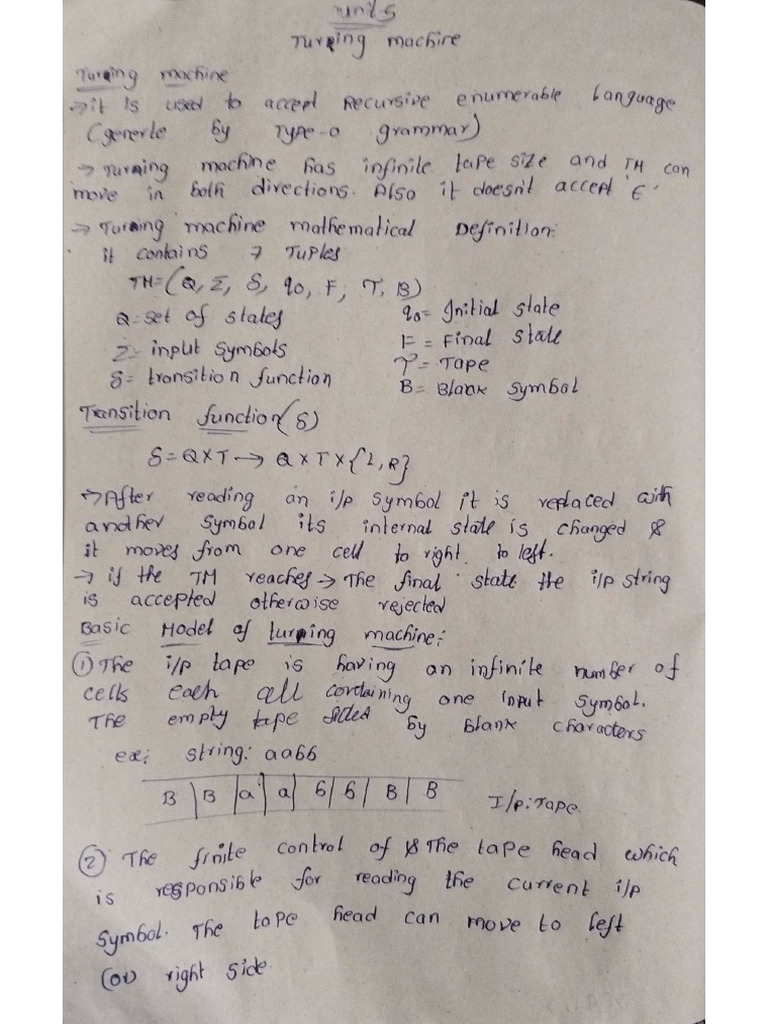 unit 5
Turning machine
Turning machine
→ it is used to accept Recursive enumerable language
(generte by TYPE-0 grammar)
→ Turning machine has infinite tape size and TM can
move in both directions. Also it doesn't accept 'ε'
→ Turning machine mathematical Definition:
it contains 7 Tuples
TM=(Q, Σ, δ, q0, F, T, B)
Q=set of states
q0= Initial state
Σ= input symbols
F = Final state
δ= transition function
T= Tape
B= Blank symbol
Transition function(δ)
δ=Q×T→ Q×T×{L,R}
→After reading an i/p symbol it is replaced with
another symbol its internal state is changed &
it moves from one cell to right to left.
→ if the TM reaches → The final state the i/p string
is accepted otherwise rejected
Basic Model of turning machine:
① The i/p tape is having an infinite number of
cells each cell containing one input symbol.
The empty tape filled by blank characters
ex: string: aabb
B B a a b b B B
I/p:Tape.
② The finite control of & The tape head which
is responsible for reading the current i/p
symbol. The tape head can move to left
(or) right side.